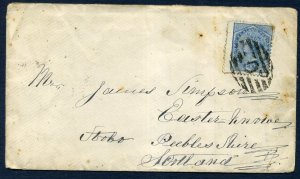 Mr. James Simpson
Easter Knowe
Stobo Peeblesshire
Scotland